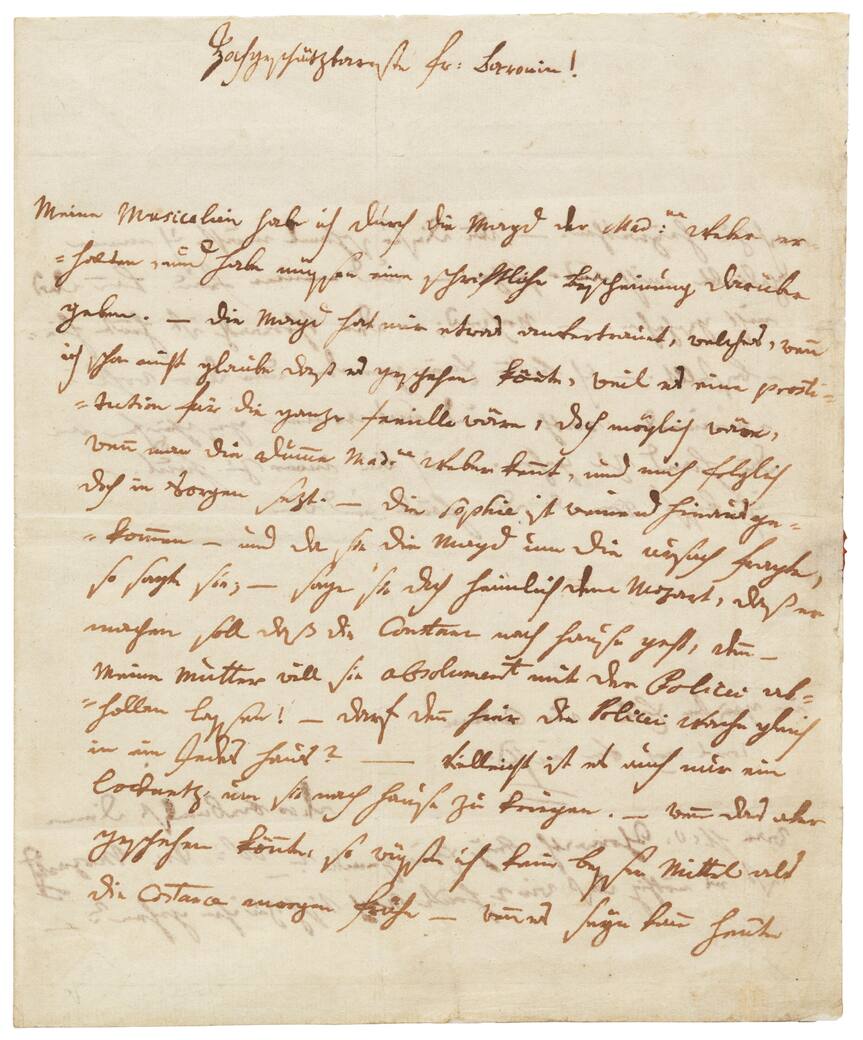 Hochgeschätzbareste fr: Baronin!
Meine Musicalien habe ich durch die Magd der Mad:me Weber er-
=halten, und habe müssen eine schriftliche bescheinung darüber
geben. — die Magd hat mir etwas anvertrauet, welches, wenn
ich schon nicht glaube daß es geschehen könte, weil es eine prosti=
=tution für die ganze famille wäre, doch möglich wäre,
wenn man die dumme Mad:me Weber kennt, und mich folglich
doch in Sorgen sezt. — die sophie ist weinend hinausge=
=kommen — und da sie die Magd um die ursach fragte,
so sagte sie; — sage sie doch heimlich dem Mozart, daß er
machen soll daß die Constanz nach hause geht, denn —
Meine Mutter will sie absolument mit der Policei ab=
=hollen lassen! — darf denn hier die Policei Wache gleich
in ein Jedes haus? — vielleicht ist es auch nur ein
locknetz um sie nach hause zu kriegen. — wenn das aber
geschehen könnte, so wüsste ich kein bessers Mittel als
die Costance morgen frühe — wenn es seyn kann heute